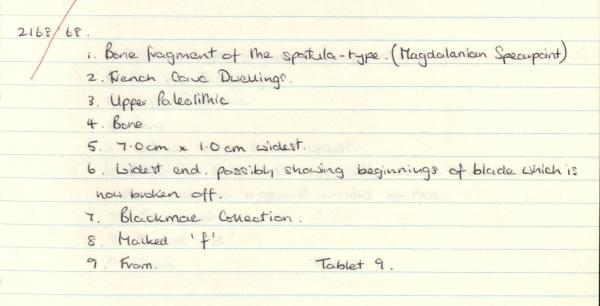 2168/68.
1. Bone fragment of the spatula-type. (Magdalanian Spearpoint)
2. French Cave Dwellings.
3. Upper Paleolithic
4. Bone.
5. 7.0cm x 1.0cm widest.
6. Widest end possibly showing beginnings of blade which is
now broken off.
7. Blackmore Collection.
8. Marked 'f'
9. From. Tablet 9.